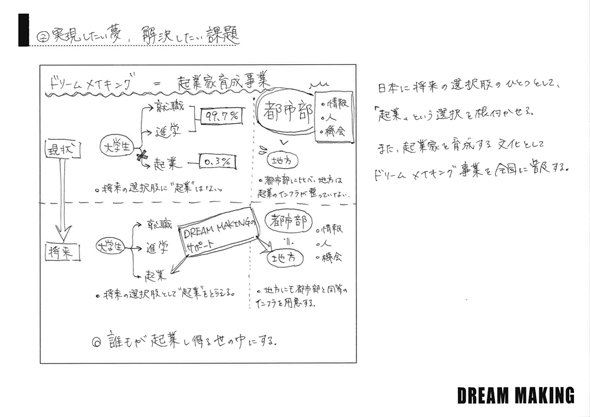 ②実現したい夢、解決したい課題
ドリームメイキング = 起業家育成事業
現状
大学生
就職
進学
99.7%
起業
0.3%
・将来の選択肢に"起業"はない。
都市部
・情報
・人
・機会
地方
・都市部に比べ、地方は
起業のインフラが整っていない。
将来
大学生
就職
進学
起業
DREAM MAKINGの
サポート
・将来の選択肢として"起業"をとらえる。
都市部
〃
地方
・情報
・人
・機会
・地方にも都市部と同等の
インフラを用意する。
◎ 誰もが起業し得る世の中にする。
日本に将来の選択肢のひとつとして、
「起業」という選択を根付かせる。
また、起業家を育成する文化として
ドリームメイキング事業を全国に普及する。
DREAM MAKING